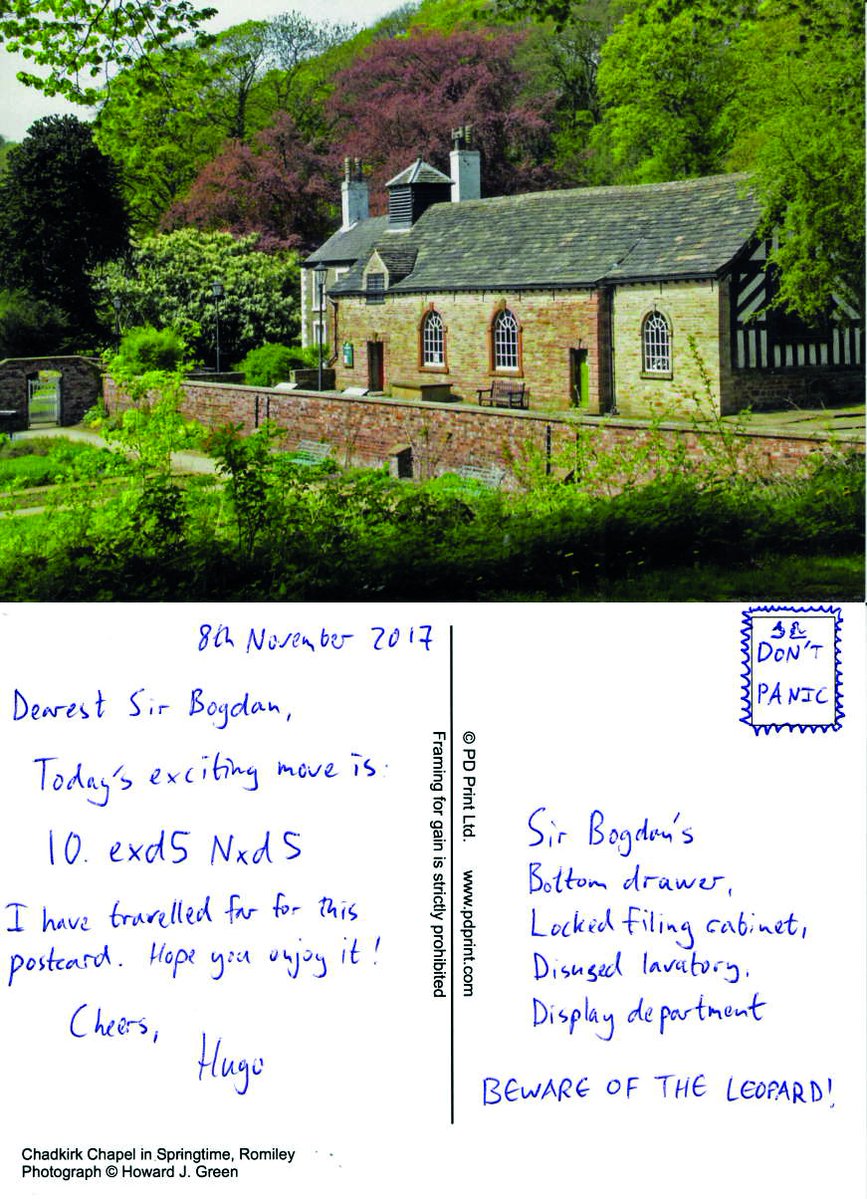 8th November 2017
Dearest Sir Bogdan,
Today's exciting move is:
10. exd5 Nxd5
I have travelled far for this
postcard. Hope you enjoy it!
Cheers,
Hugo
Chadkirk Chapel in Springtime, Romiley
Photograph © Howard J. Green
Framing for gain is strictly prohibited
© PD Print Ltd. www.pdprint.com
DON'T
PANIC
Sir Bogdan's
Bottom drawer,
Locked filing cabinet,
Disused lavatory,
Display department
BEWARE OF THE LEOPARD!